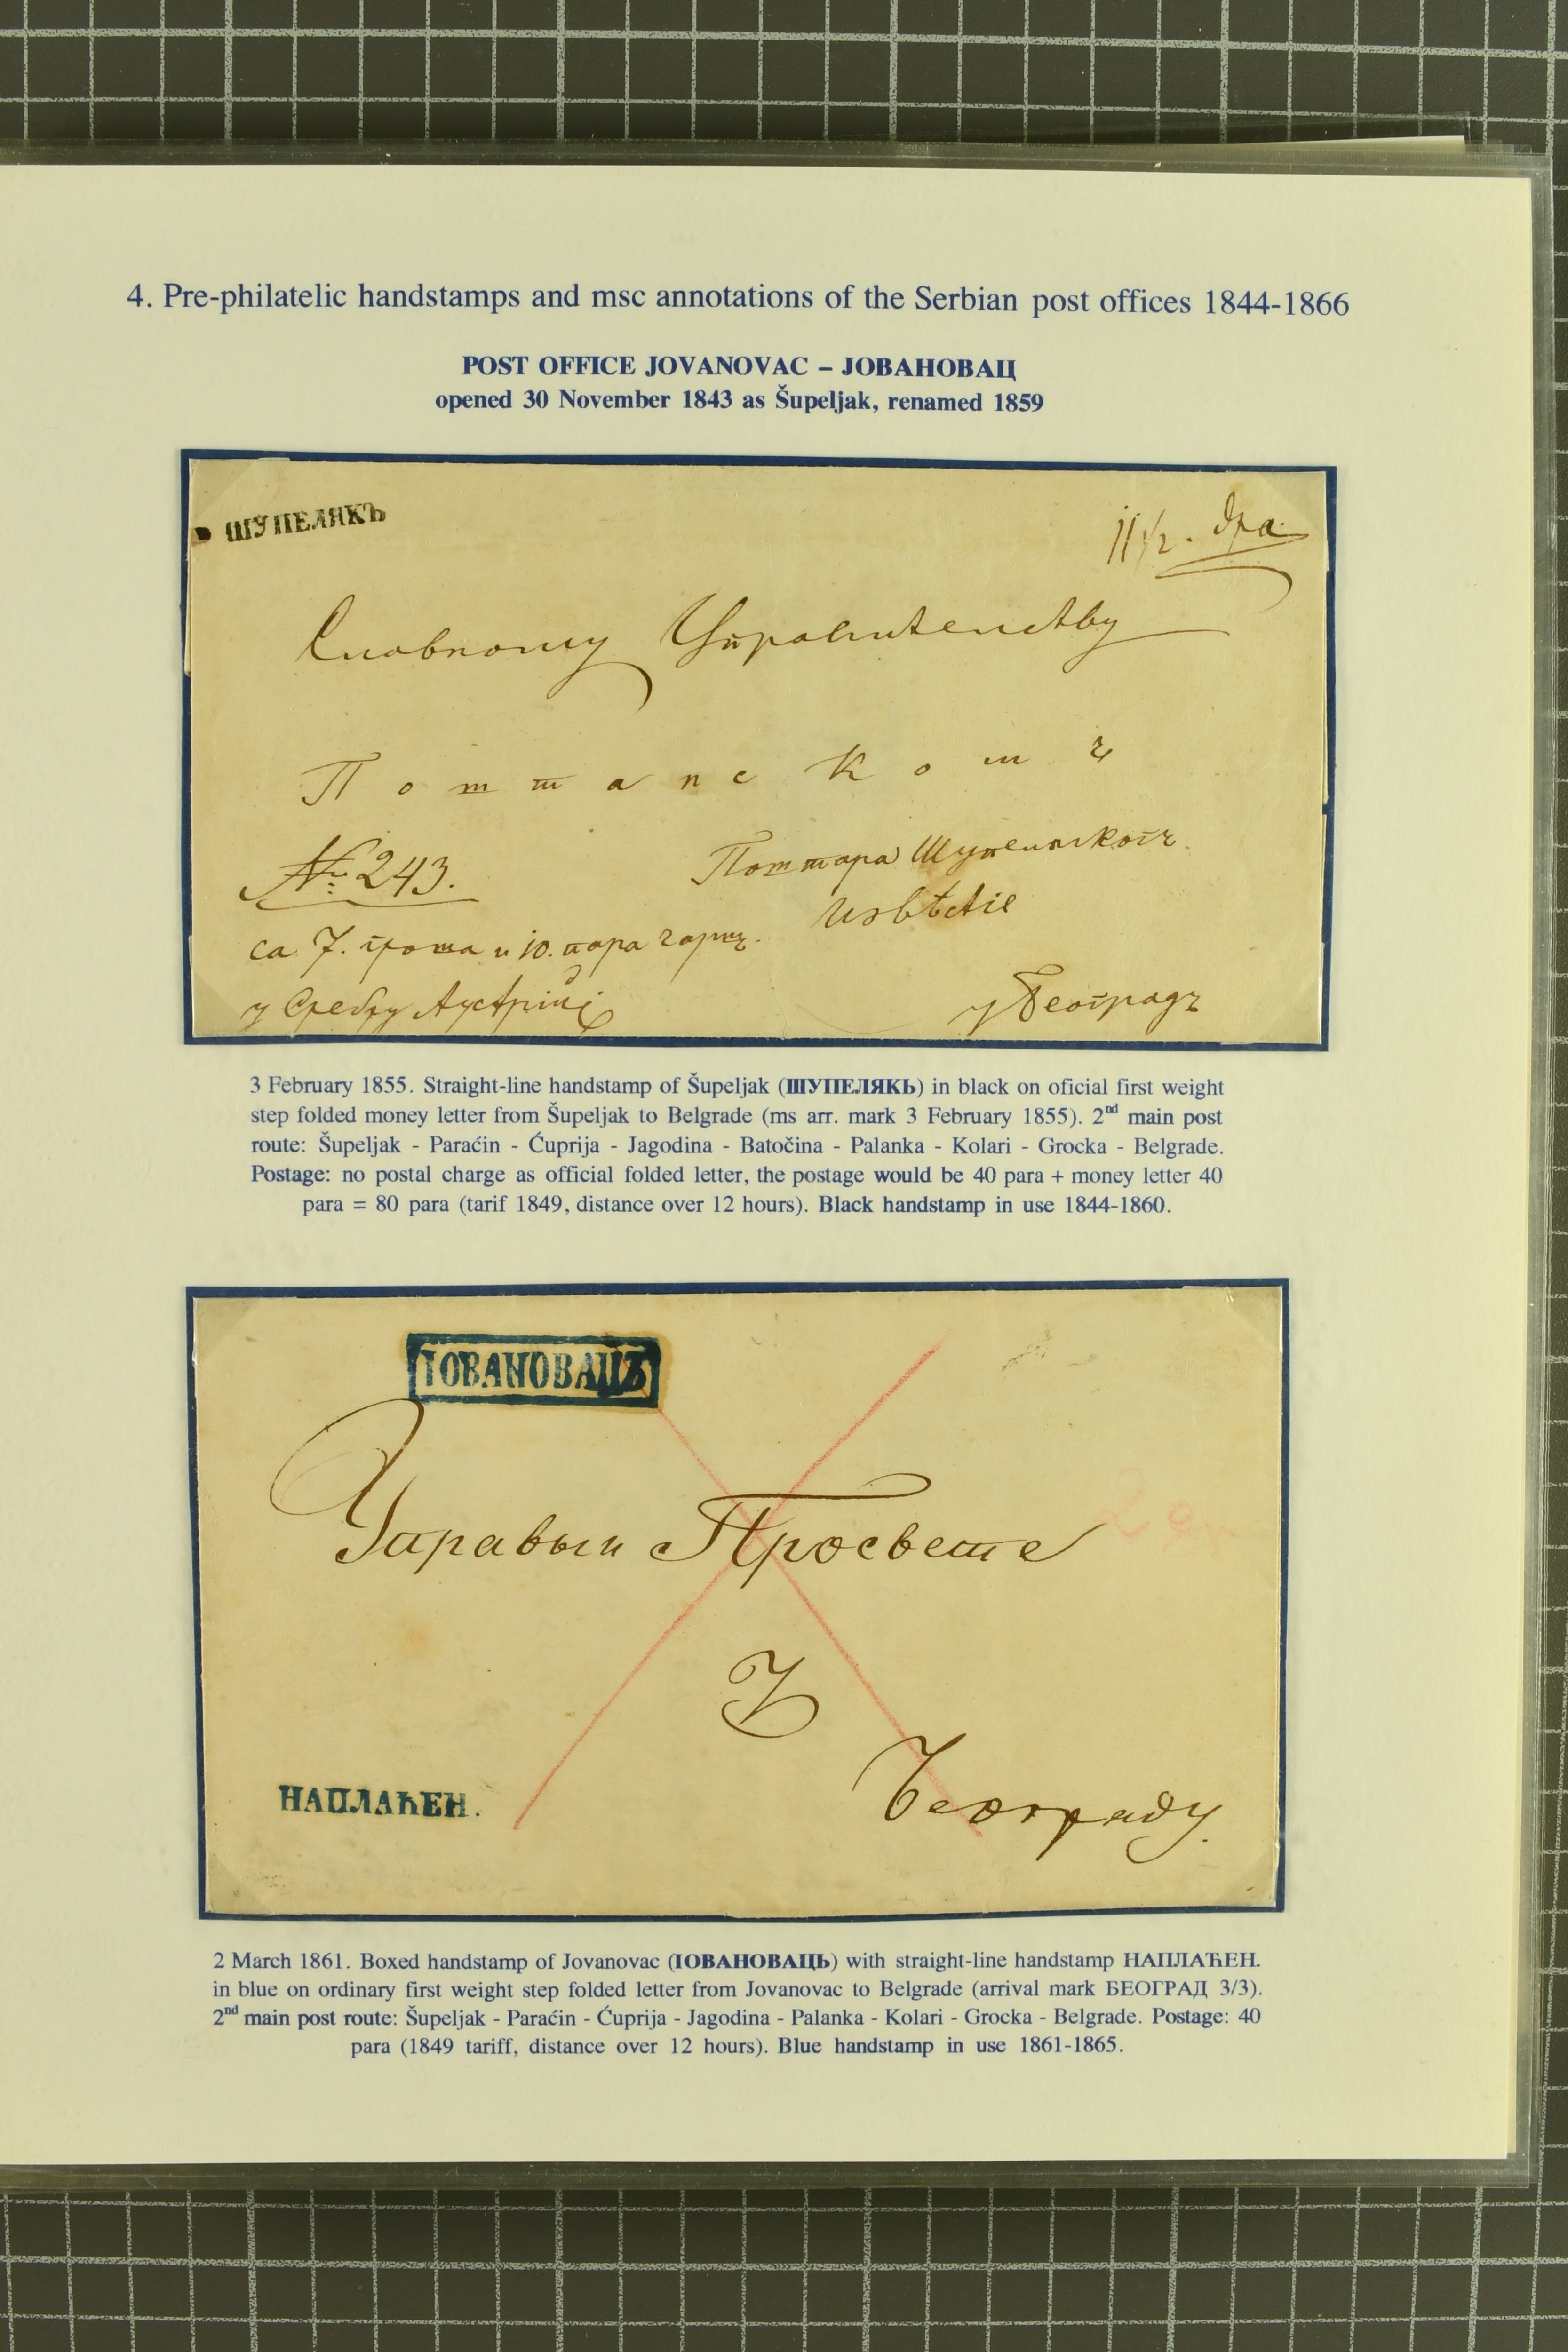 4. Pre-philatelic handstamps and msc annotations of the Serbian post offices 1844-1866
POST OFFICE JOVANOVAC – ЈОВАНОВАЦ
opened 30 November 1843 as Šupeljak, renamed 1859
ШУПЕЛЯКЪ
11 1/2. дра.
Славному Управителству
Поштанскомъ
№ 243.
Поштара Шупелякогъ
Извѣстіе
са 7. гроша и 10. пара
у Сребру
у Београдъ
3 February 1855. Straight-line handstamp of Šupeljak (ШУПЕЛЯКЬ) in black on oficial first weight
step folded money letter from Šupeljak to Belgrade (ms arr. mark 3 February 1855). 2nd main post
route: Šupeljak - Paraćin - Ćuprija - Jagodina - Batočina - Palanka - Kolari - Grocka - Belgrade.
Postage: no postal charge as official folded letter, the postage would be 40 para + money letter 40
para = 80 para (tarif 1849, distance over 12 hours). Black handstamp in use 1844-1860.
ІОВАНОВАЦЪ
Управыи Просвете
У
Београду.
НАПЛАЋЕН.
2 March 1861. Boxed handstamp of Jovanovac (ІОВАНОВАЦЬ) with straight-line handstamp НАПЛАЋЕН.
in blue on ordinary first weight step folded letter from Jovanovac to Belgrade (arrival mark БЕОГРАД 3/3).
2nd main post route: Šupeljak - Paraćin - Ćuprija - Jagodina - Palanka - Kolari - Grocka - Belgrade. Postage: 40
para (1849 tariff, distance over 12 hours). Blue handstamp in use 1861-1865.